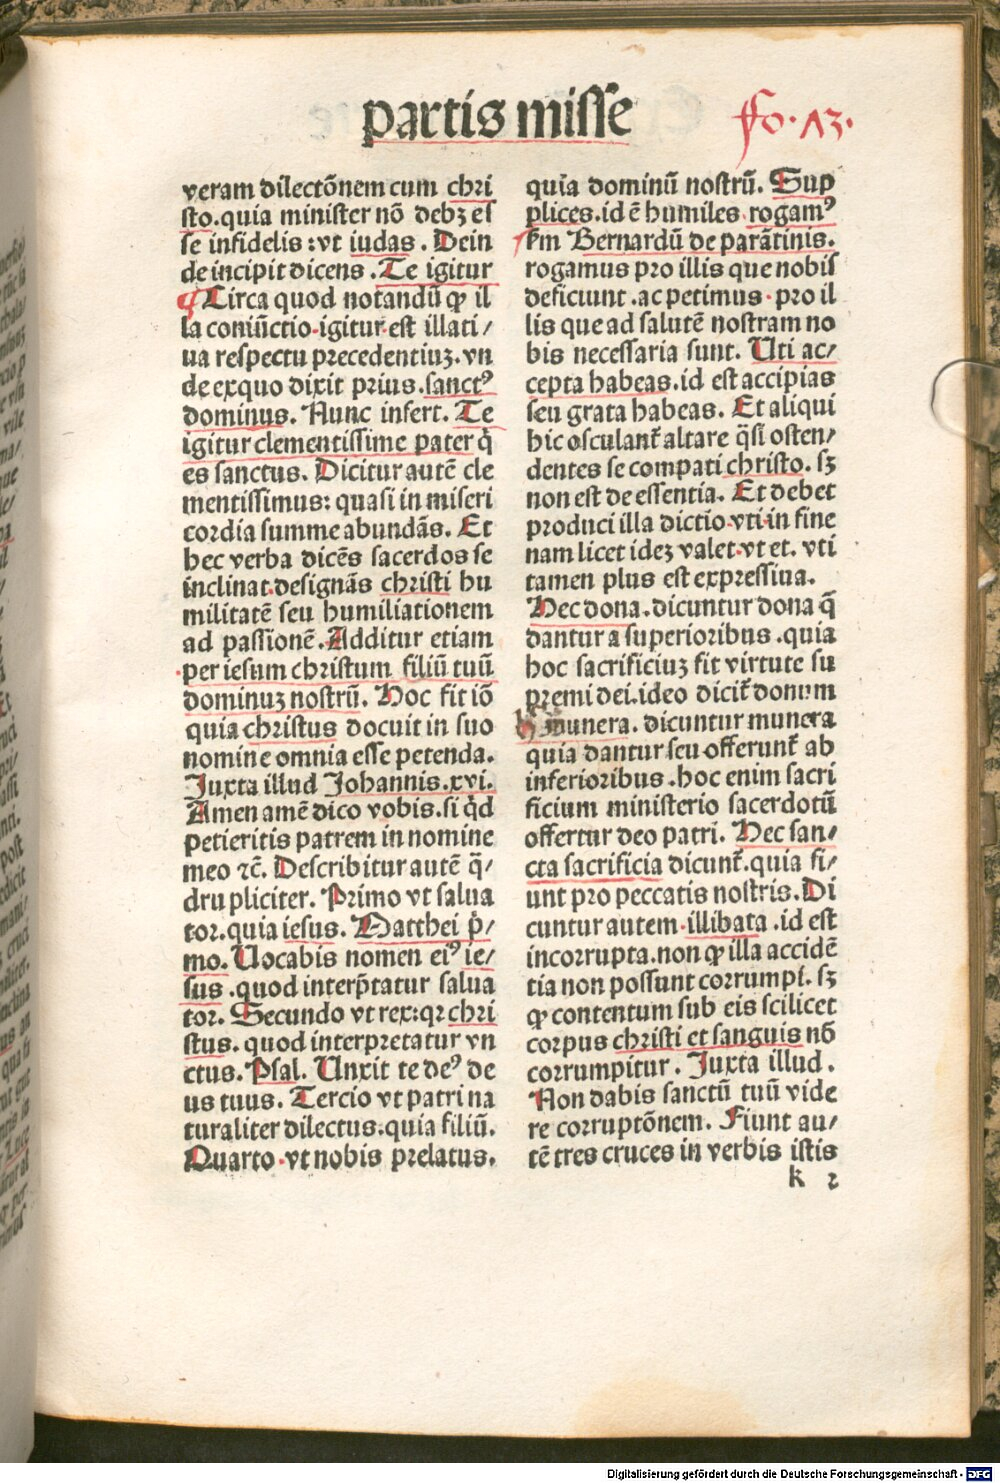 partis misse
fo. 73.
veram dilectōnem cum chri
sto. quia minister nō debꝫ es
se infidelis: vt iudas. Dein
de incipit dicens. Te igitur
Circa quod notandū ꝙ il
la coniūctio. igitur. est illati/
ua respectu precedentiuꝫ. vn
de exquo dixit prius. sanctꝰ
dominus. Nunc infert. Te
igitur clementissime pater q̄
es sanctus. Dicitur autē cle
mentissimus: quasi in miseri
cordia summe abundās. Et
hec verba dicēs sacerdos se
inclinat. designās christi hu
militatē seu humiliationem
ad passionē. Additur etiam
per iesum christum filiū tuū
dominuꝫ nostrū. Hoc fit iō
quia christus docuit in suo
nomine omnia esse petenda.
Juxta illud Johannis. xvi.
Amen amē dico vobis. si q̇d
petieritis patrem in nomine
meo ⁊c̄. Describitur autē q̄/
dru pliciter. Primo vt salua
tor. quia iesus. Matthei p̄/
mo. Uocabis nomen eiꝰ ie/
sus. quod interp̄tatur salua
tor. Secundo vt rex: qꝛ chri
stus. quod interpretatur vn
ctus. Psal. Unxit te deꝰ de
us tuus. Tercio vt patri na
turaliter dilectus. quia filiū.
Quarto. vt nobis prelatus.
quia dominū nostrū. Sup
plices. id ē humiles rogamꝰ
ẜm Bernardū de parētinis.
rogamus pro illis que nobis
deficiunt. ac petimus. pro il
lis que ad salutē nostram no
bis necessaria sunt. Uti ac/
cepta habeas. id est accipias
seu grata habeas. Et aliqui
hic osculant̄ altare q̄si osten/
dentes se compati christo. sꝫ
non est de essentia. Et debet
produci illa dictio. vti. in fine
nam licet ideꝫ valet. vt et. vti
tamen plus est expressiua.
Hec dona. dicuntur dona q̄
dantur a superioribus. quia
hoc sacrificiuꝫ fit virtute su
premi dei. ideo dicit̄ donum
munera. dicuntur munera
quia dantur seu offerunt̄ ab
inferioribus. hoc enim sacri
ficium ministerio sacerdotū
offertur deo patri. Hec san/
cta sacrificia dicunt̄. quia fi/
unt pro peccatis nostris. Di
cuntur autem. illibata. id est
incorrupta. non ꝙ illa accidē
tia non possunt corrumpi. sꝫ
ꝙ contentum sub eis scilicet
corpus christi et sanguis nō
corrumpitur. Juxta illud.
Non dabis sanctū tuū vide
re corruptōnem. Fiunt au/
tē tres cruces in verbis istis
k 2
Digitalisierung gefördert durch die Deutsche Forschungsgemeinschaft - DFG